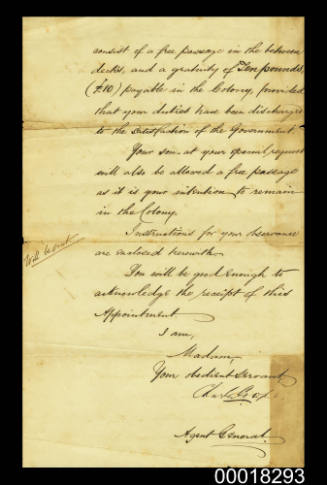 consist of a free passage in the between
decks, and a gratuity of Ten pounds,
(£10) payable in the Colony, provided
that your duties have been discharged
to the satisfaction of the Government.
Your son, at your special request
will also be allowed a free passage
as it is your intention to remain
in the Colony.
Instructions for your observance
are enclosed herewith.
Will be sent
You will be good enough to
acknowledge the receipt of this
Appointment
I am,
Madam,
Your obedient Servant
Agent General.
00018293